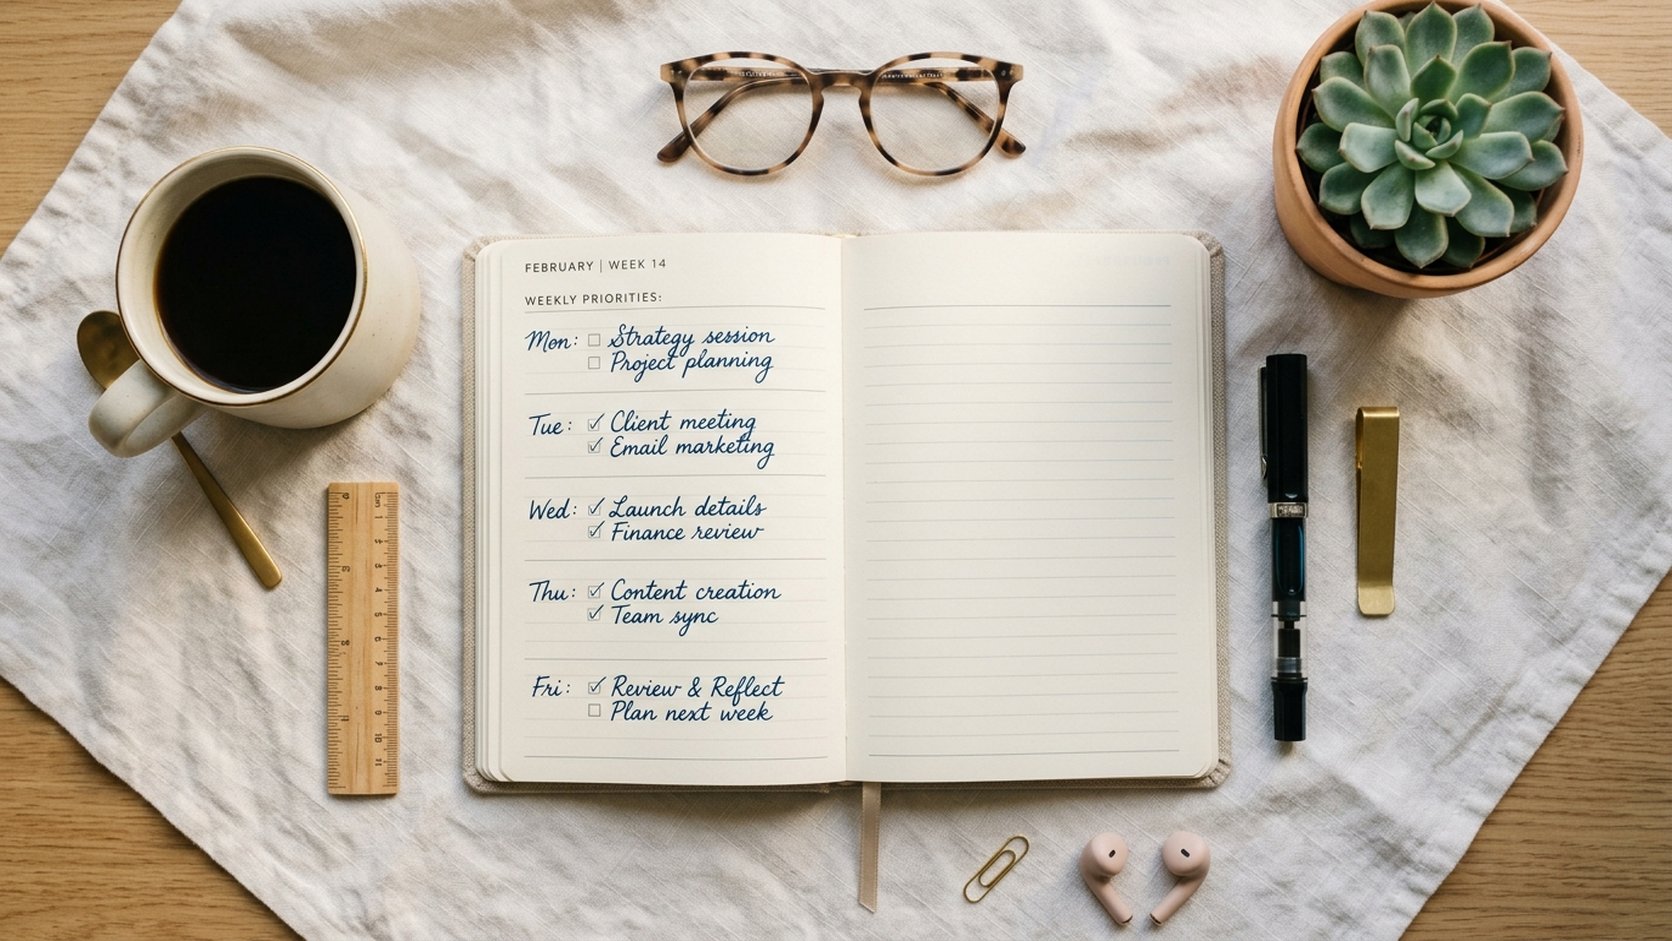 FEBRUARY | WEEK 14
WEEKLY PRIORITIES:
Mon: ☐ Strategy session
☐ Project planning
Tue: ☑ Client meeting
☑ Email marketing
Wed: ☑ Launch details
☑ Finance review
Thu: ☑ Content creation
☑ Team sync
Fri: ☑ Review & Reflect
☐ Plan next week